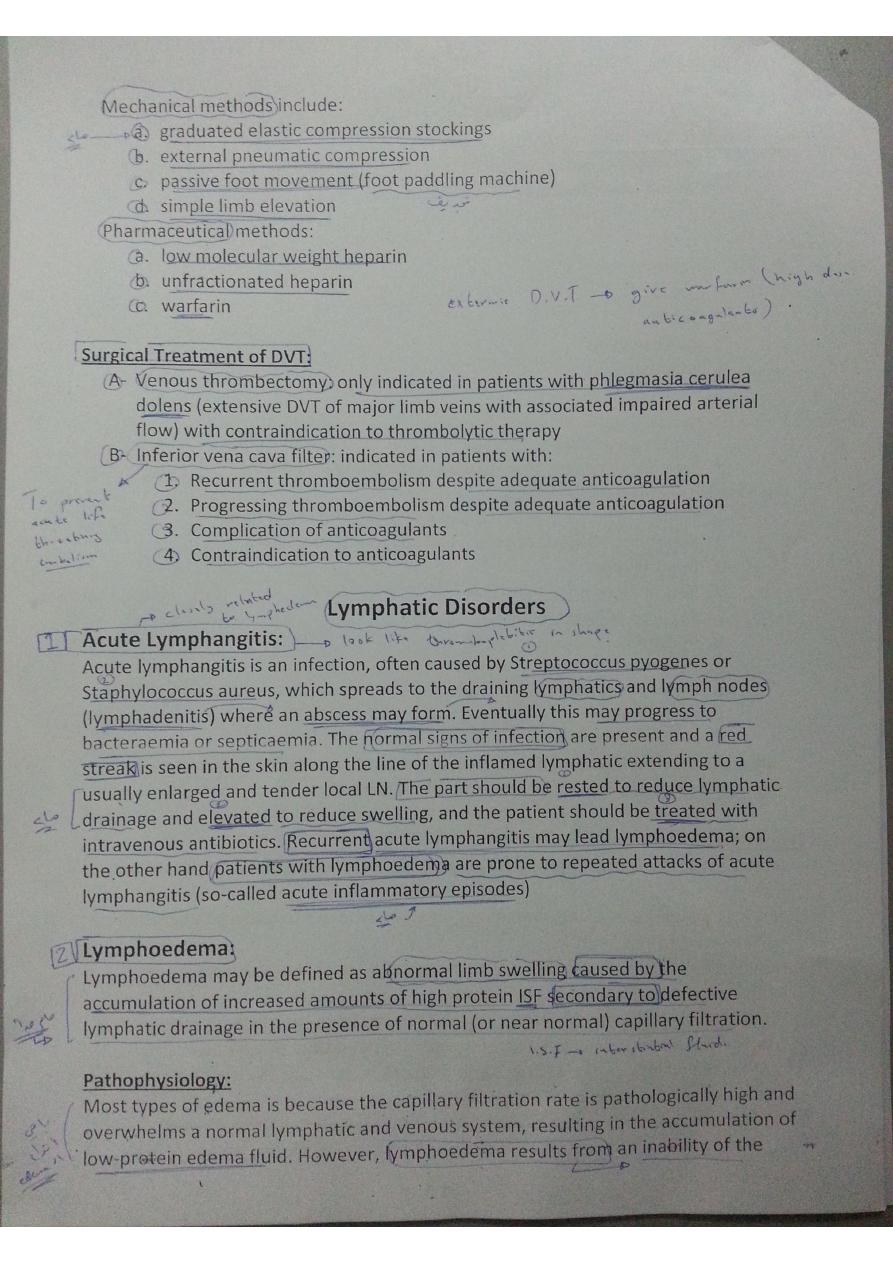 Mechanical methods include:
a. graduated elastic compression stockings
b. external pneumatic compression
c. passive foot movement (foot paddling machine)
d. simple limb elevation
Pharmaceutical methods:
a. low molecular weight heparin
b. unfractionated heparin
c. warfarin
D.V.T → give warfarin (high
anticoagulants)
Surgical Treatment of DVT:
A- Venous thrombectomy: only indicated in patients with phlegmasia cerulea
dolens (extensive DVT of major limb veins with associated impaired arterial
flow) with contraindication to thrombolytic therapy
B- Inferior vena cava filter: indicated in patients with:
1. Recurrent thromboembolism despite adequate anticoagulation
2. Progressing thromboembolism despite adequate anticoagulation
3. Complication of anticoagulants
4. Contraindication to anticoagulants
To prevent
acute life
embolism
→ closely related
to lymphedem
Lymphatic Disorders
1 Acute Lymphangitis: → look like in shape
Acute lymphangitis is an infection, often caused by Streptococcus pyogenes or
Staphylococcus aureus, which spreads to the draining lymphatics and lymph nodes
(lymphadenitis) where an abscess may form. Eventually this may progress to
bacteraemia or septicaemia. The normal signs of infection are present and a red
streak is seen in the skin along the line of the inflamed lymphatic extending to a
usually enlarged and tender local LN. The part should be rested to reduce lymphatic
drainage and elevated to reduce swelling, and the patient should be treated with
intravenous antibiotics. Recurrent acute lymphangitis may lead lymphoedema; on
the other hand patients with lymphoedema are prone to repeated attacks of acute
lymphangitis (so-called acute inflammatory episodes)
2 Lymphoedema:
Lymphoedema may be defined as abnormal limb swelling caused by the
accumulation of increased amounts of high protein ISF secondary to defective
lymphatic drainage in the presence of normal (or near normal) capillary filtration.
I.S.F → interstitial fluid.
Pathophysiology:
Most types of edema is because the capillary filtration rate is pathologically high and
overwhelms a normal lymphatic and venous system, resulting in the accumulation of
low-protein edema fluid. However, lymphoedema results from an inability of the